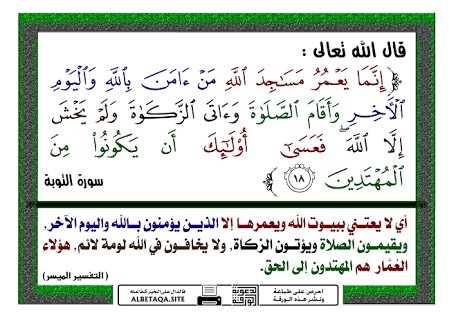 قال الله تعالى :
﴿ إِنَّمَا يَعْمُرُ مَسَٰجِدَ ٱللَّهِ مَنْ ءَامَنَ بِٱللَّهِ وَٱلْيَوْمِ
ٱلْأَخِرِ وَأَقَامَ ٱلصَّلَوٰةَ وَءَاتَى ٱلزَّكَوٰةَ وَلَمْ يَخْشَ
إِلَّا ٱللَّهَ ۖ فَعَسَىٰٓ أُو۟لَٰٓئِكَ أَن يَكُونُوا۟ مِنَ
ٱلْمُهْتَدِينَ ١٨ ﴾ سورة التوبة
أي لا يعتني ببيوت الله ويعمرها إلا الذين يؤمنون بالله واليوم الآخر,
ويقيمون الصلاة ويؤتون الزكاة, ولا يخافون في الله لومة لائم, هؤلاء
العُمَّار هم المهتدون إلى الحق. (التفسير الميسر)
احرص على طباعة
ونشر هذه الورقة
دعوة
بورقة
فالدال على الخير كفاعله
ALBETAQA.SITE